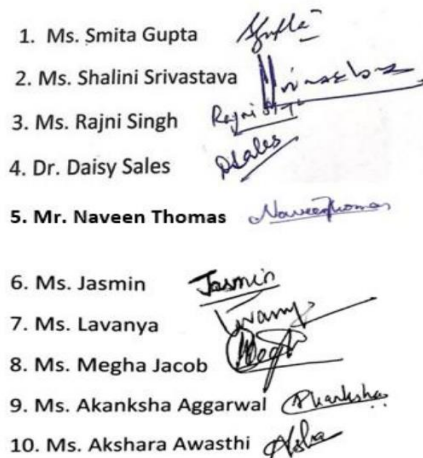 1. Ms. Smita Gupta
2. Ms. Shalini Srivastava
3. Ms. Rajni Singh Rajni
4. Dr. Daisy Sales DSales
5. Mr. Naveen Thomas NaveenThomas
6. Ms. Jasmin Jasmin
7. Ms. Lavanya
8. Ms. Megha Jacob
9. Ms. Akanksha Aggarwal Akanksha
10. Ms. Akshara Awasthi